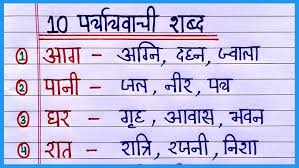 10 पर्यायवाची शब्द
1 आग - अग्नि, दहन, ज्वाला
2 पानी - जल, नीर, पय
3 घर - गृह, आवास, भवन
4 रात - रात्रि, रजनी, निशा